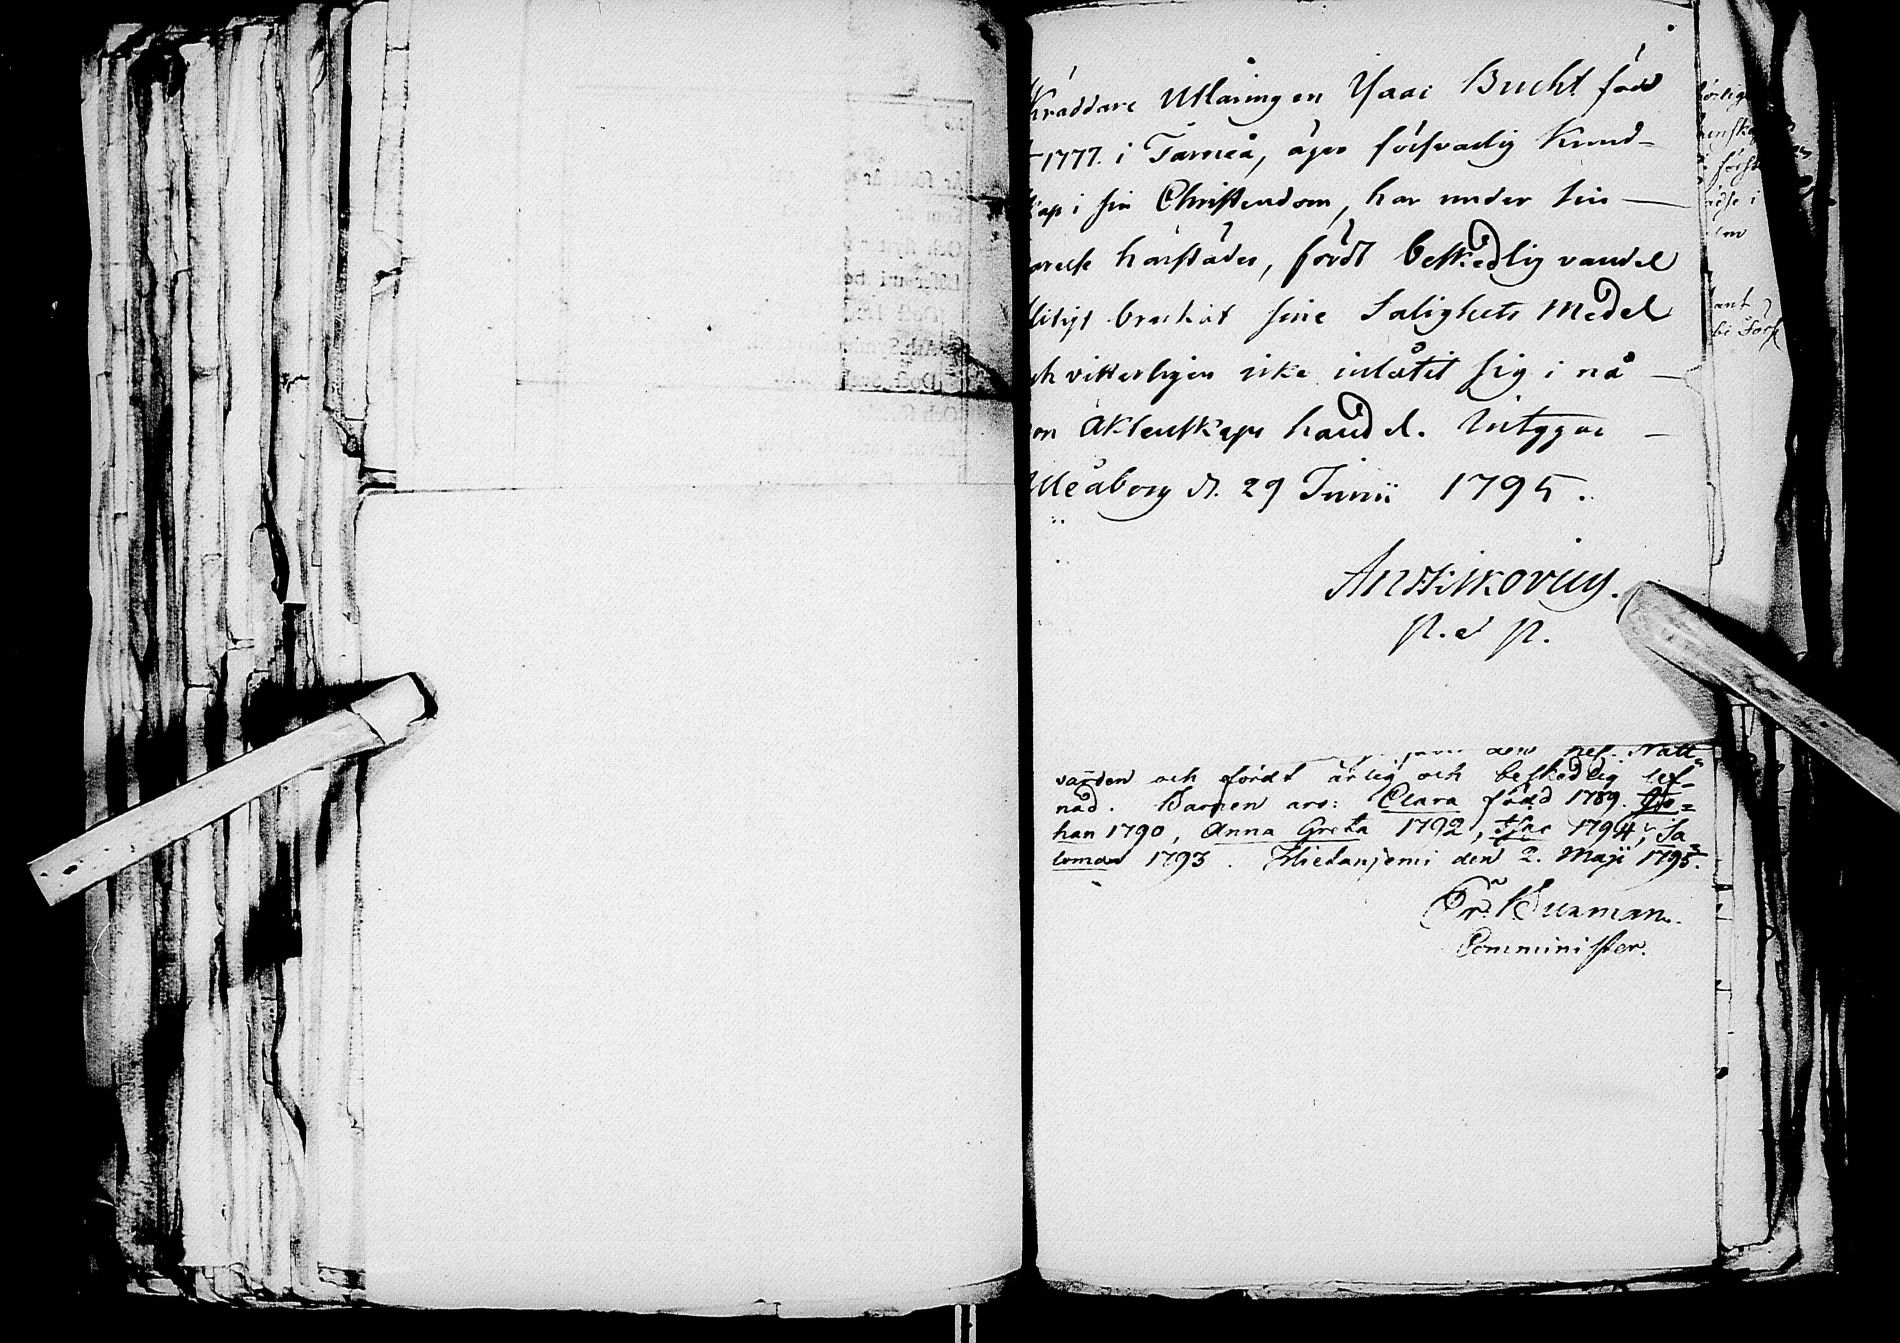 kräddare Utläring en Isaac Bucht föd
1777. i Torneå, äger försvarlig Kund-
kap i sin Christendom, har under sin
härstädes, fördt beskedlig vandel
flitigt brukat sine Salighets Medel
och vitterligen icke inlåtit sig i nå
on Äktenskaps handel. Intygar
Uleåborg d. 29 Junii 1795.
p. et p.
den hel. Natt-
varden och fördt ärlig och beskedlig lef-
nad. Barnen äro: Clara född 1789. Jo-
han 1790, Anna Greta 1792, Isac 1794, Sa-
lomon 1793. Hietaniemi den 2. Maji 1795.
Comminister.